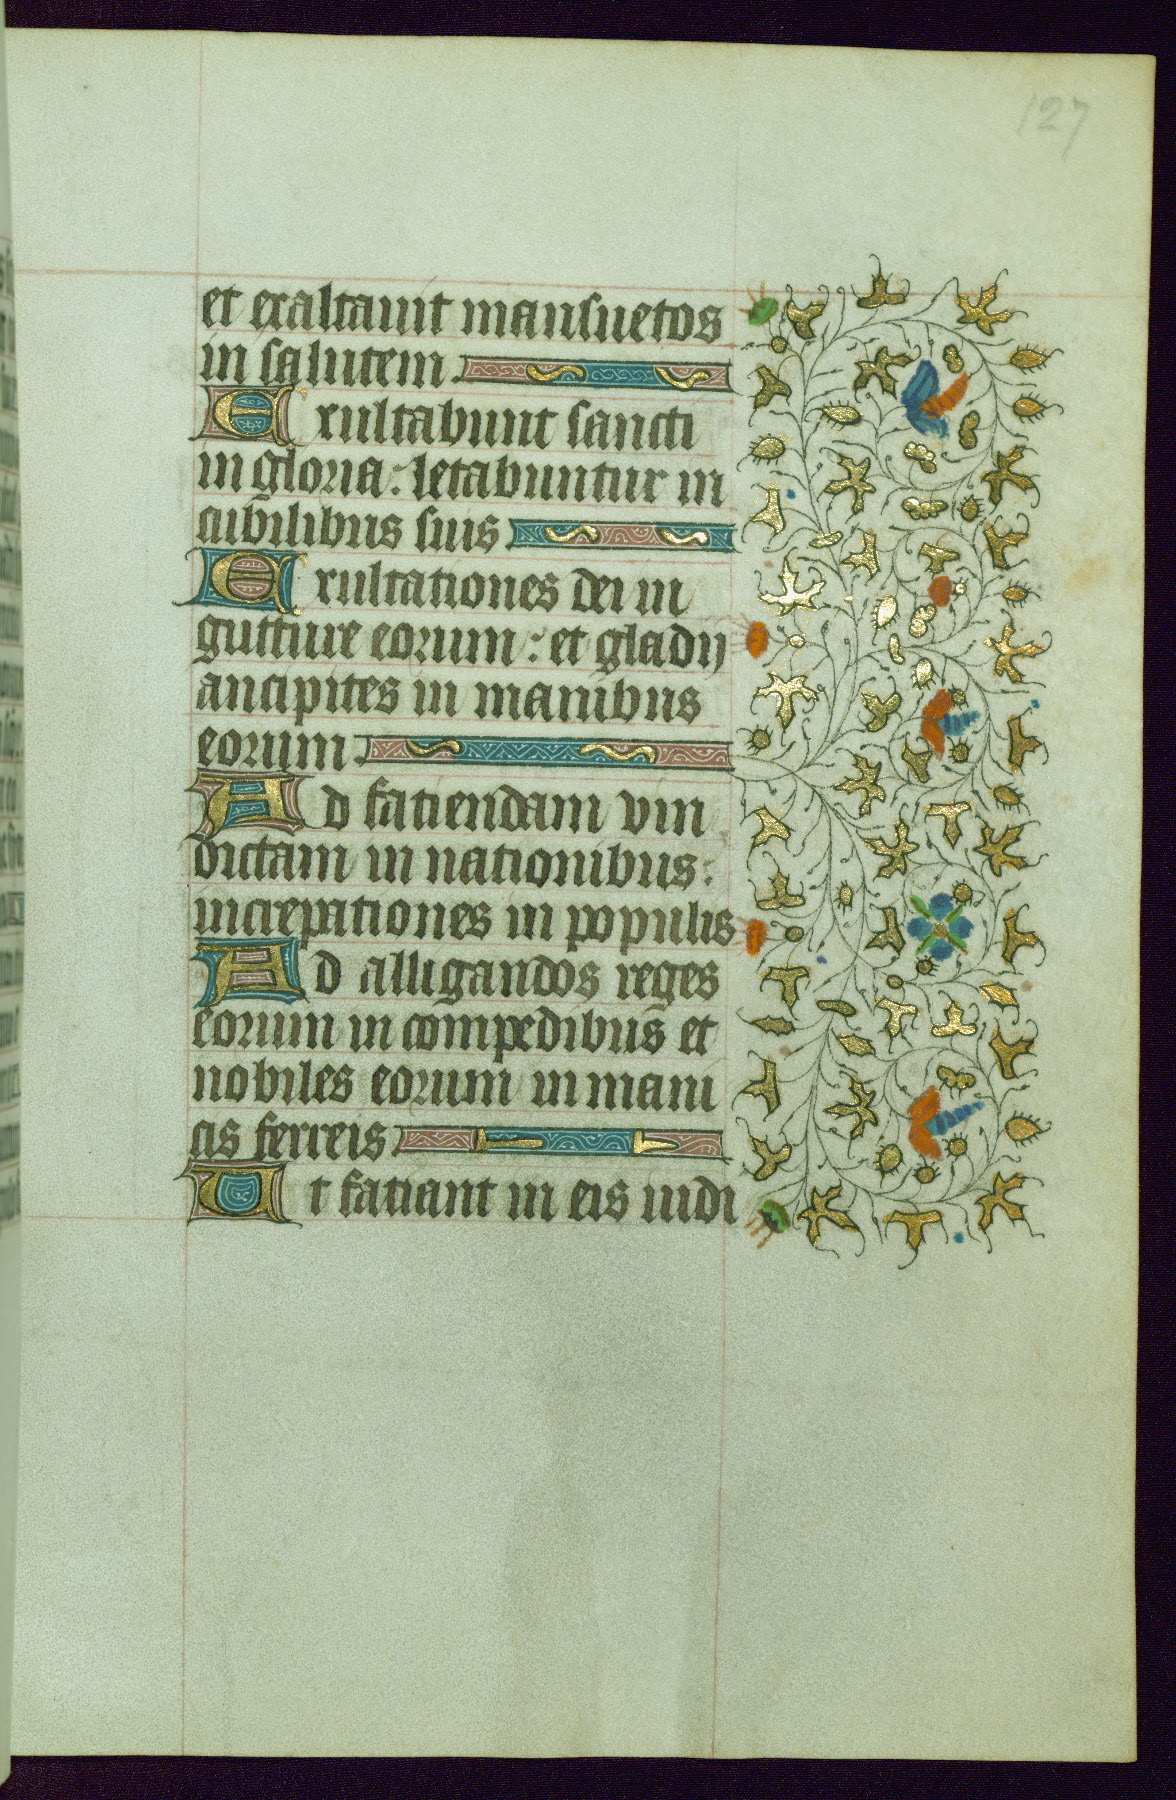 127
et exaltavit mansuetos
in salutem
Exultabunt sancti
in gloria: letabuntur in
cubilibus suis
Exultationes dei in
gutture eorum: et gladij
ancipites in manibus
eorum
Ad fatiendam vin
dictam in nationibus:
increpationes in populis
Ad alligandos reges
eorum in compedibus et
nobiles eorum in mani
cis ferreis
Ut fatiant in eis iudi